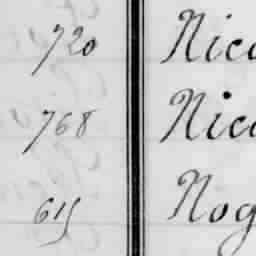 720 Nico
768 Nico
615 Nog